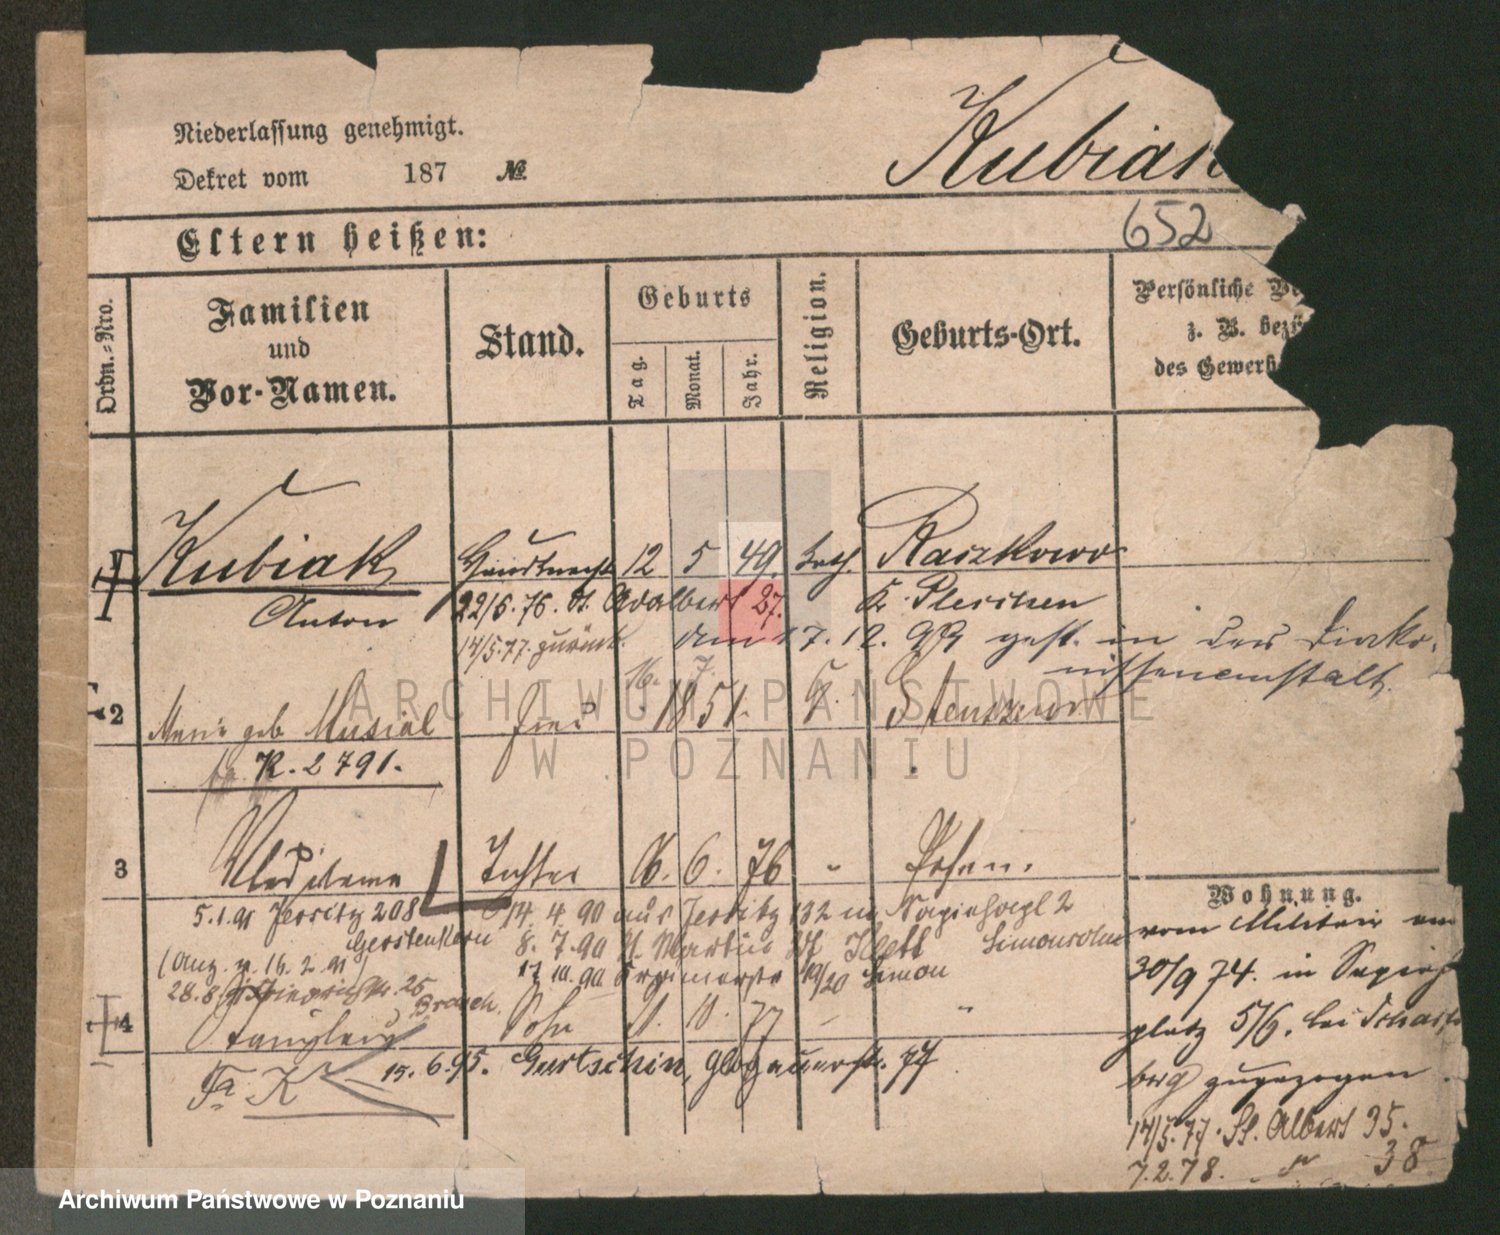 Niederlassung genehmigt.
Dekret vom 187 №
Kubiak
Eltern heißen:
652
Ordn.=Nro.
Familien
und
Vor-Namen.
Stand.
Geburts
Tag. Monat. Jahr.
Religion.
Geburts-Ort.
Persönliche
z. B.
des Gewerb
Kubiak 12 5 49. kath. Raszkowo
Anton 22/6. 76. St. Adalbert 27. Kr. Pleschen
14/5. 77. zurück. den 17. 12. 99 gest. in der Diako-
nissenanstalt.
16. 7.
2 geb Musial 1851. K.
K. 2791.
3 Tochter 6. 76 " Posen.
5.1.91 Jersitz 208 14. 4. 90 aus Jersitz 132 n. Sapiehapl 2
Gerstenkern 8. 7. 90 St. Martin
(Anz. v. 16. 2. 91) 17. 10. 90 19/20 Simon
28.8. 25
4 Stanislaus Sohn 11. 10. 77 "
Fa K 15. 6. 95. Gurtschin, Glogauerstr. 77
Wohnung.
vom Militair am
30/9 74. in Sapieh
platz 5/6. bei
berg zugezogen
14/5. 77. St. Albert 35.
7. 2. 78. 38
ARCHIWUM PAŃSTWOWE
W POZNANIU
Archiwum Państwowe w Poznaniu